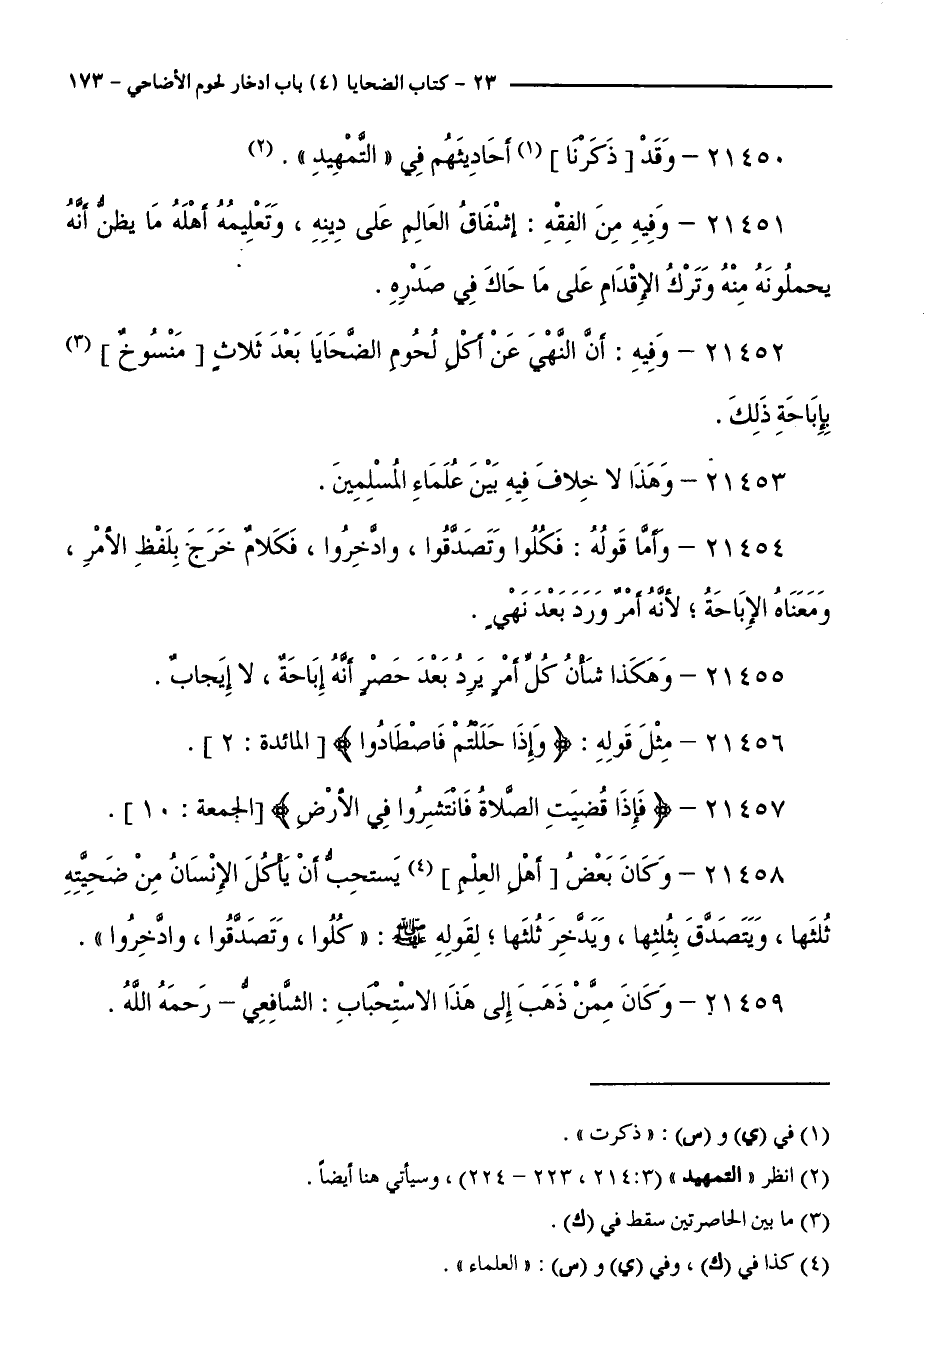 ٢٣ - كتاب الضحايا (٤) باب ادخار لحوم الأضاحي - ١٧٣
٢١٤٥٠ - وَقَدْ [ ذَكَرْنَا ] (١) أَحَادِيثَهُم فِي « التَّمْهِيدِ » . (٢)
٢١٤٥١ - وَفِيهِ مِنَ الفِقْهِ : إِشْفَاقُ العَالِمِ عَلى دِينِهِ ، وَتَعْلِيمُهُ أَهْلَهُ مَا يظنُّ أَنَّهُ
يحملُونَهُ مِنْهُ وَتَرْكُ الإِقْدَامِ عَلى مَا حَاكَ فِي صَدْرِهِ .
٢١٤٥٢ - وَفِيهِ : أَنَّ النَّهْيَ عَنْ أَكْلِ لُحُومِ الضَّحَايَا بَعْدَ ثَلاثٍ [ مَنْسُوخٌ ] (٣)
بِإِبَاحَةِ ذَلِكَ .
٢١٤٥٣ - وَهَذَا لا خِلافَ فِيهِ بَيْنَ عُلَمَاءِ المُسْلِمِينَ .
٢١٤٥٤ - وَأَمَّا قَولُهُ : فَكُلُوا وَتَصَدَّقُوا ، وادَّخِرُوا ، فَكَلامٌ خَرَجَ بِلَفْظِ الأَمْرِ ،
وَمَعَنَاهُ الإِبَاحَةُ ؛ لأَنَّهُ أَمْرٌ وَرَدَ بَعْدَ نَهْيٍ .
٢١٤٥٥ - وَهَكَذا شَأْنُ كُلِّ أَمْرٍ يَرِدُ بَعْدَ حَصْرٍ أَنَّهُ إِبَاحَةٌ ، لا إِيَجابٌ .
٢١٤٥٦ - مِثْلَ قَولِهِ : ﴿ وَإِذَا حَلَلْتُمْ فَاصْطَادُوا ﴾ [ المائدة : ٢ ] .
٢١٤٥٧ - ﴿ فَإِذَا قُضِيَتِ الصَّلاةُ فَانْتَشِرُوا فِي الأَرْضِ ﴾ [الجمعة : ١٠ ] .
٢١٤٥٨ - وَكَانَ بَعْضُ [ أَهْلِ العِلْمِ ] (٤) يَستحبُّ أَنْ يَأْكُلَ الإِنْسَانُ مِنْ ضَحِيَّتِهِ
ثُلثَها ، وَيَتَصَدَّقَ بِثُلثِها ، وَيَدَّخِرَ ثُلثَها ؛ لِقَولِهِ ﷺ : « كُلُوا ، وَتَصَدَّقُوا ، وادَّخِرُوا » .
٢١٤٥٩ - وَكَانَ مِمَّنْ ذَهَبَ إِلى هَذَا الاسْتِحْبَابِ : الشَّافِعِيُّ - رَحمَهُ اللَّهُ .
(١) في (ي) و (س) : « ذكرت » .
(٢) انظر « التمهيد » (٢١٤:٣ ، ٢٢٣ - ٢٢٤) ، وسيأتي هنا أيضاً .
(٣) ما بين الحاصرتين سقط في (ك) .
(٤) كذا في (ك) ، وفي (ي) و (س) : « العلماء » .